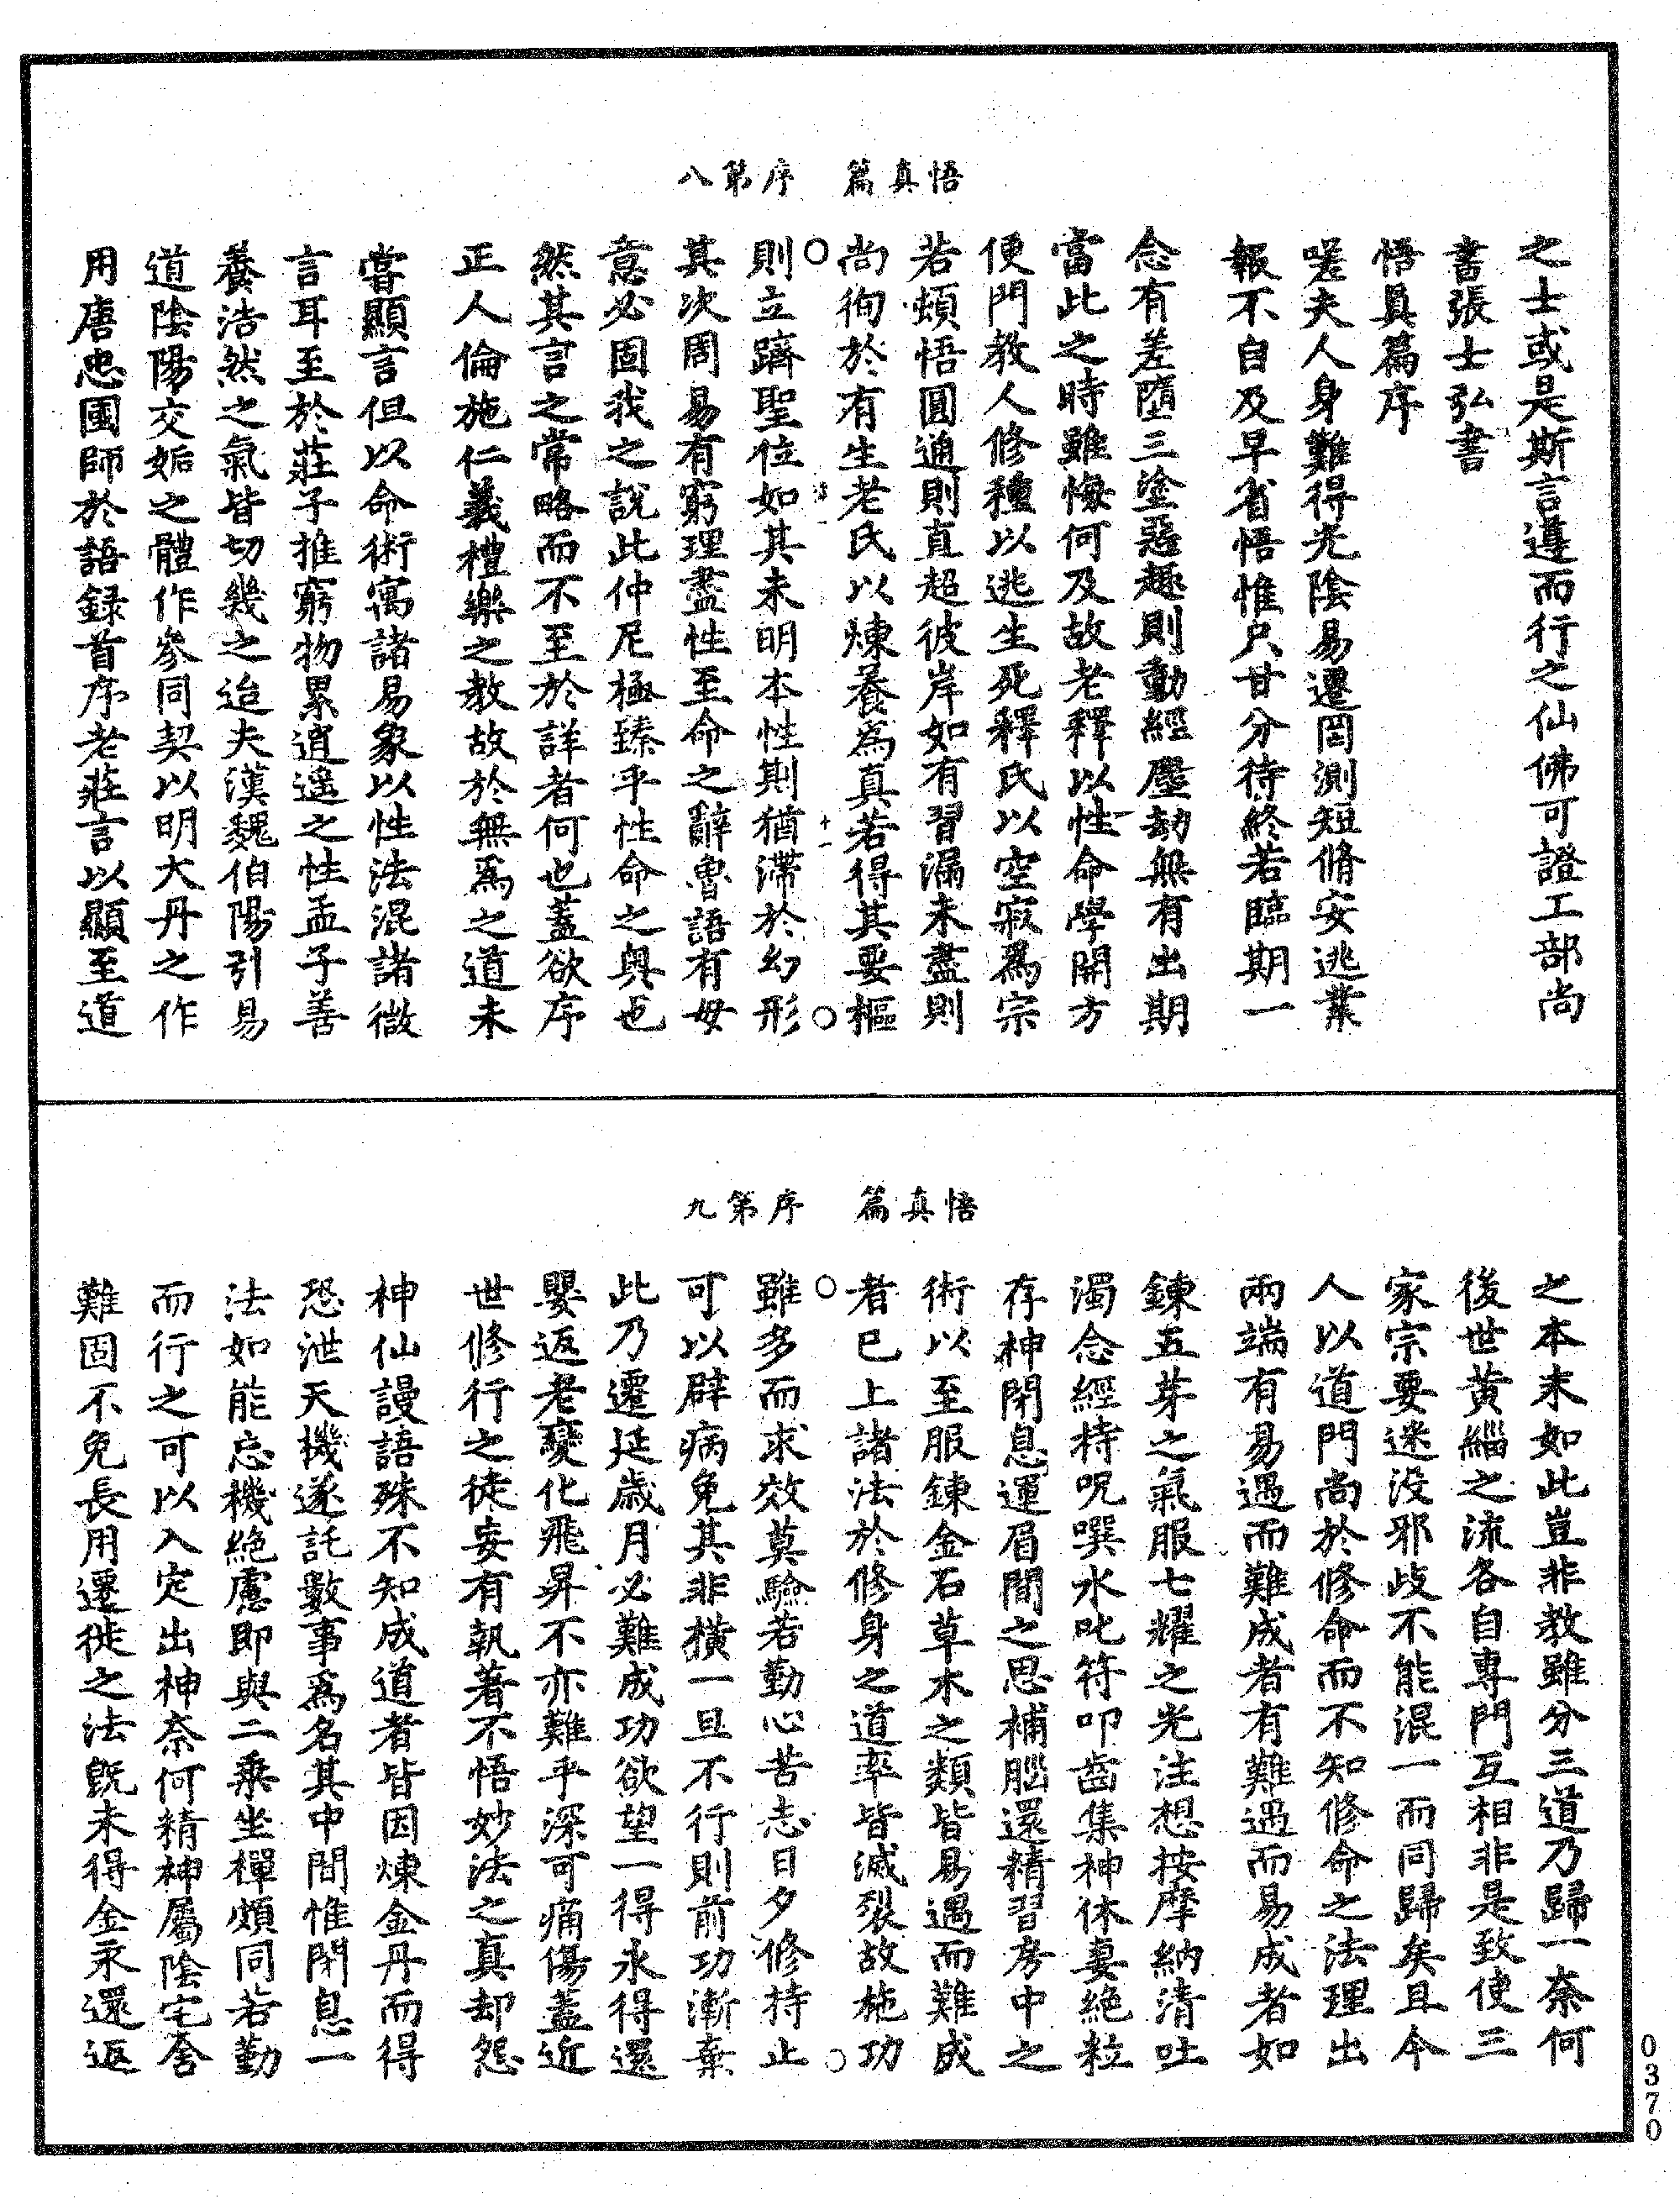 悟真篇　序第八
之士或是斯言遵而行之仙佛可證工部尚
書張士弘書
悟真篇序
嗟夫人身難得光陰易遷罔測短脩安逃業
報不自及早省悟惟只甘分待終若臨期一
念有差墮三塗惡趣則動經塵劫無有出期
當此之時雖悔何及故老釋以性命學開方
便門教人修種以逃生死釋氏以空寂為宗
若頓悟圓通則直超彼岸如有習漏未盡則
尚徇於有生老氏以煉養為真若得其要樞
則立躋聖位如其未明本性則猶滯於幻形
其次周易有窮理盡性至命之辭魯語有毋
意必固我之說此仲尼極臻乎性命之奧也
然其言之常略而不至於詳者何也蓋欲序
正人倫施仁義禮樂之教故於無為之道未
嘗顯言但以命術寓諸易象以性法混諸微
言耳至於莊子推窮物累逍遙之性孟子善
養浩然之氣皆切幾之迨夫漢魏伯陽引易
道陰陽交姤之體作參同契以明大丹之作
用唐忠國師於語録首序老莊言以顯至道
悟真篇　序第九
之本末如此豈非教雖分三道乃歸一奈何
後世黃緇之流各自專門互相非是致使三
家宗要迷没邪歧不能混一而同歸矣且今
人以道門尚於修命而不知修命之法理出
兩端有易遇而難成者有難遇而易成者如
鍊五芽之氣服七耀之光注想按摩納清吐
濁念經持呪噀水叱符叩齒集神休妻絶粒
存神閉息運眉間之思補腦還精習房中之
術以至服鍊金石草木之類皆易遇而難成
者巳上諸法於修身之道率皆滅裂故施功
雖多而求效莫驗若勤心苦志日夕修持止
可以辟病免其非橫一旦不行則前功漸棄
此乃遷延歲月必難成功欲望一得永得還
嬰返老變化飛昇不亦難乎深可痛傷蓋近
世修行之徒妄有執著不悟妙法之真却怨
神仙謾語殊不知成道者皆因煉金丹而得
恐泄天機遂託數事為名其中間惟閉息一
法如能忘機絶慮即與二乘坐禪頗同若勤
而行之可以入定出神奈何精神屬陰宅舍
難固不免長用遷徙之法既未得金汞還返
0370